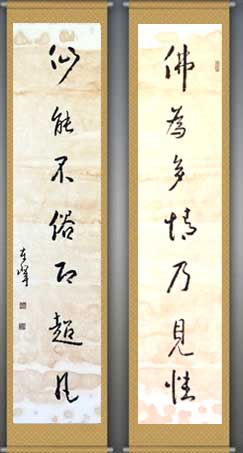 佛為多情乃見性
仙能不俗即超凡